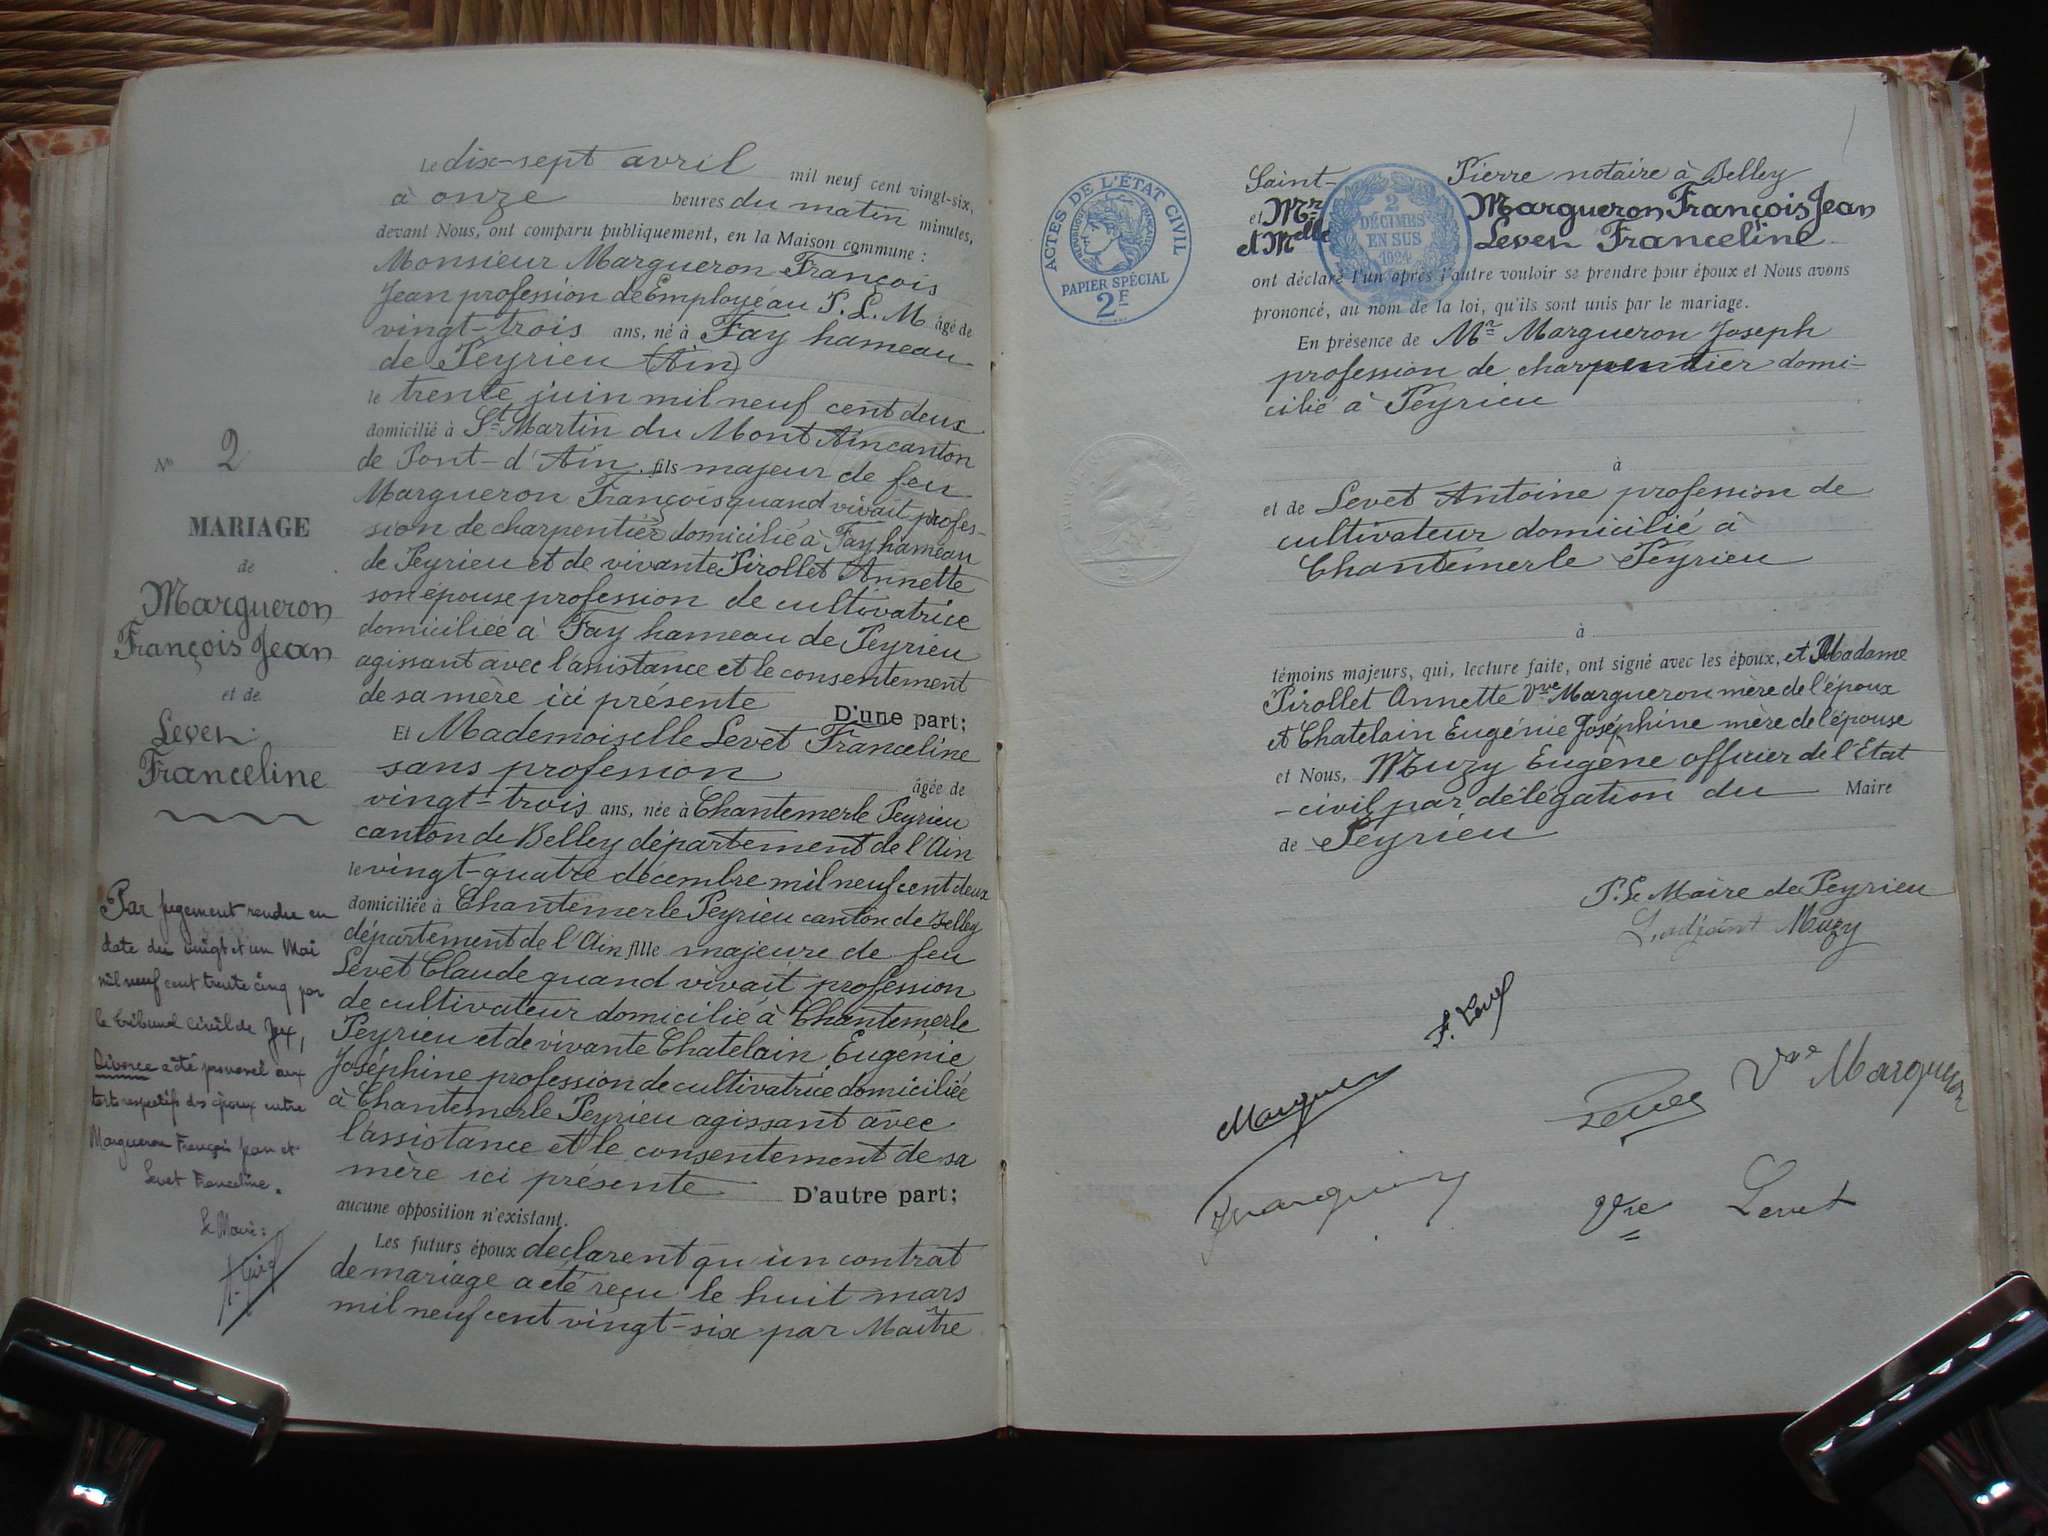 Le dix-sept avril mil neuf cent vingt-six,
à onze heures du matin minutes,
devant Nous, ont comparu publiquement, en la Maison commune :
Monsieur Margueron François
Jean profession de Employé au P. L. M âgé de
vingt-trois ans, né à Fay hameau
de Peyrieu (Ain)
le trente juin mil neuf cent deux
domicilié à St Martin du Mont Ain canton
de Pont-d'Ain fils majeur de feu
Margueron François quand vivait profes-
sion de charpentier domicilié à Fay hameau
de Peyrieu et de vivante Pirollet Annette
son épouse profession de cultivatrice
domiciliée à Fay hameau de Peyrieu
agissant avec l'assistance et le consentement
de sa mère ici présente D'une part;
Et Mademoiselle Levet Franceline
sans profession âgée de
vingt-trois ans, née à Chantemerle Peyrieu
canton de Belley département de l'Ain
le vingt-quatre décembre mil neuf cent deux
domiciliée à Chantemerle Peyrieu canton de Belley
département de l'Ain fille majeure de feu
Levet Claude quand vivait profession
de cultivateur domicilié à Chantemerle
Peyrieu et de vivante Chatelain Eugénie
Joséphine profession de cultivatrice domiciliée
à Chantemerle Peyrieu agissant avec
l'assistance et le consentement de sa
mère ici présente D'autre part;
aucune opposition n'existant.
Les futurs époux déclarent qu'un contrat
de mariage a été reçu le huit mars
mil neuf cent vingt-six par Maître
No 2
MARIAGE
de
Margueron
François Jean
et de
Leven
Franceline
Par jugement rendu en
date du vingt et un Mai
mil neuf cent trente cinq par
le tribunal civil de Gex,
Divorce a été prononcé aux
torts respectifs des époux entre
Margueron François Jean et
Levet Franceline.
Le Maire :
ACTES DE L'ÉTAT CIVIL
RÉPUBLIQUE FRANÇAISE
PAPIER SPÉCIAL
2F
2
DÉCIMES
EN SUS
1924
Saint-Pierre notaire à Belley
et Mr Margueron François Jean
et Melle Leven Franceline
ont déclaré l'un après l'autre vouloir se prendre pour époux et Nous avons
prononcé, au nom de la loi, qu'ils sont unis par le mariage.
En présence de Mr Margueron Joseph
profession de charpentier domi-
cilié à Peyrieu
à
et de Levet Antoine profession de
cultivateur domicilié à
Chantemerle Peyrieu
à
témoins majeurs, qui, lecture faite, ont signé avec les époux, et Madame
Pirollet Annette Vve Margueron mère de l'époux
et Chatelain Eugénie Joséphine mère de l'épouse
et Nous, Muzy Eugène officier de l'Etat
-civil par délégation du Maire
de Peyrieu
P. Le Maire de Peyrieu
L'adjoint Muzy
F. Levet
Margueron
Levet
Vve Margueron
Margueron
Vve Levet